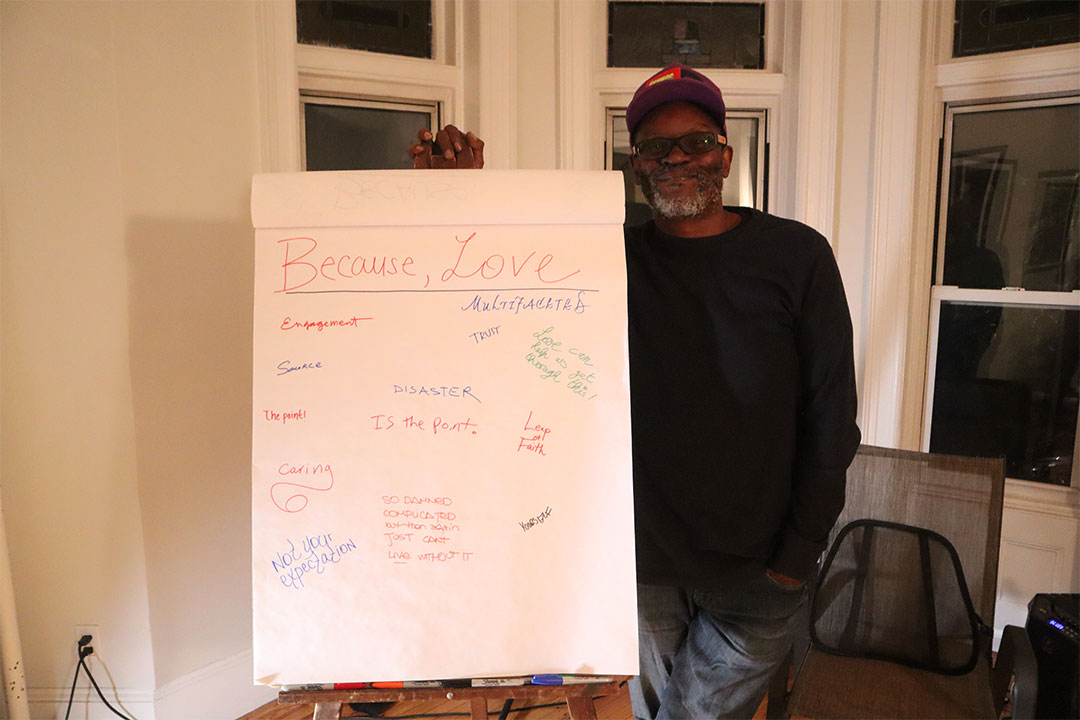 Because, Love
MULTIFACETED
Engagement
TRUST
Love can
help us get
through
this!
Source
DISASTER
The point!
IS the point.
Leap
of
Faith
Caring
SO DAMNED
COMPLICATED
but then again
JUST CANT
LIVE WITHOUT IT
Not your
expectation